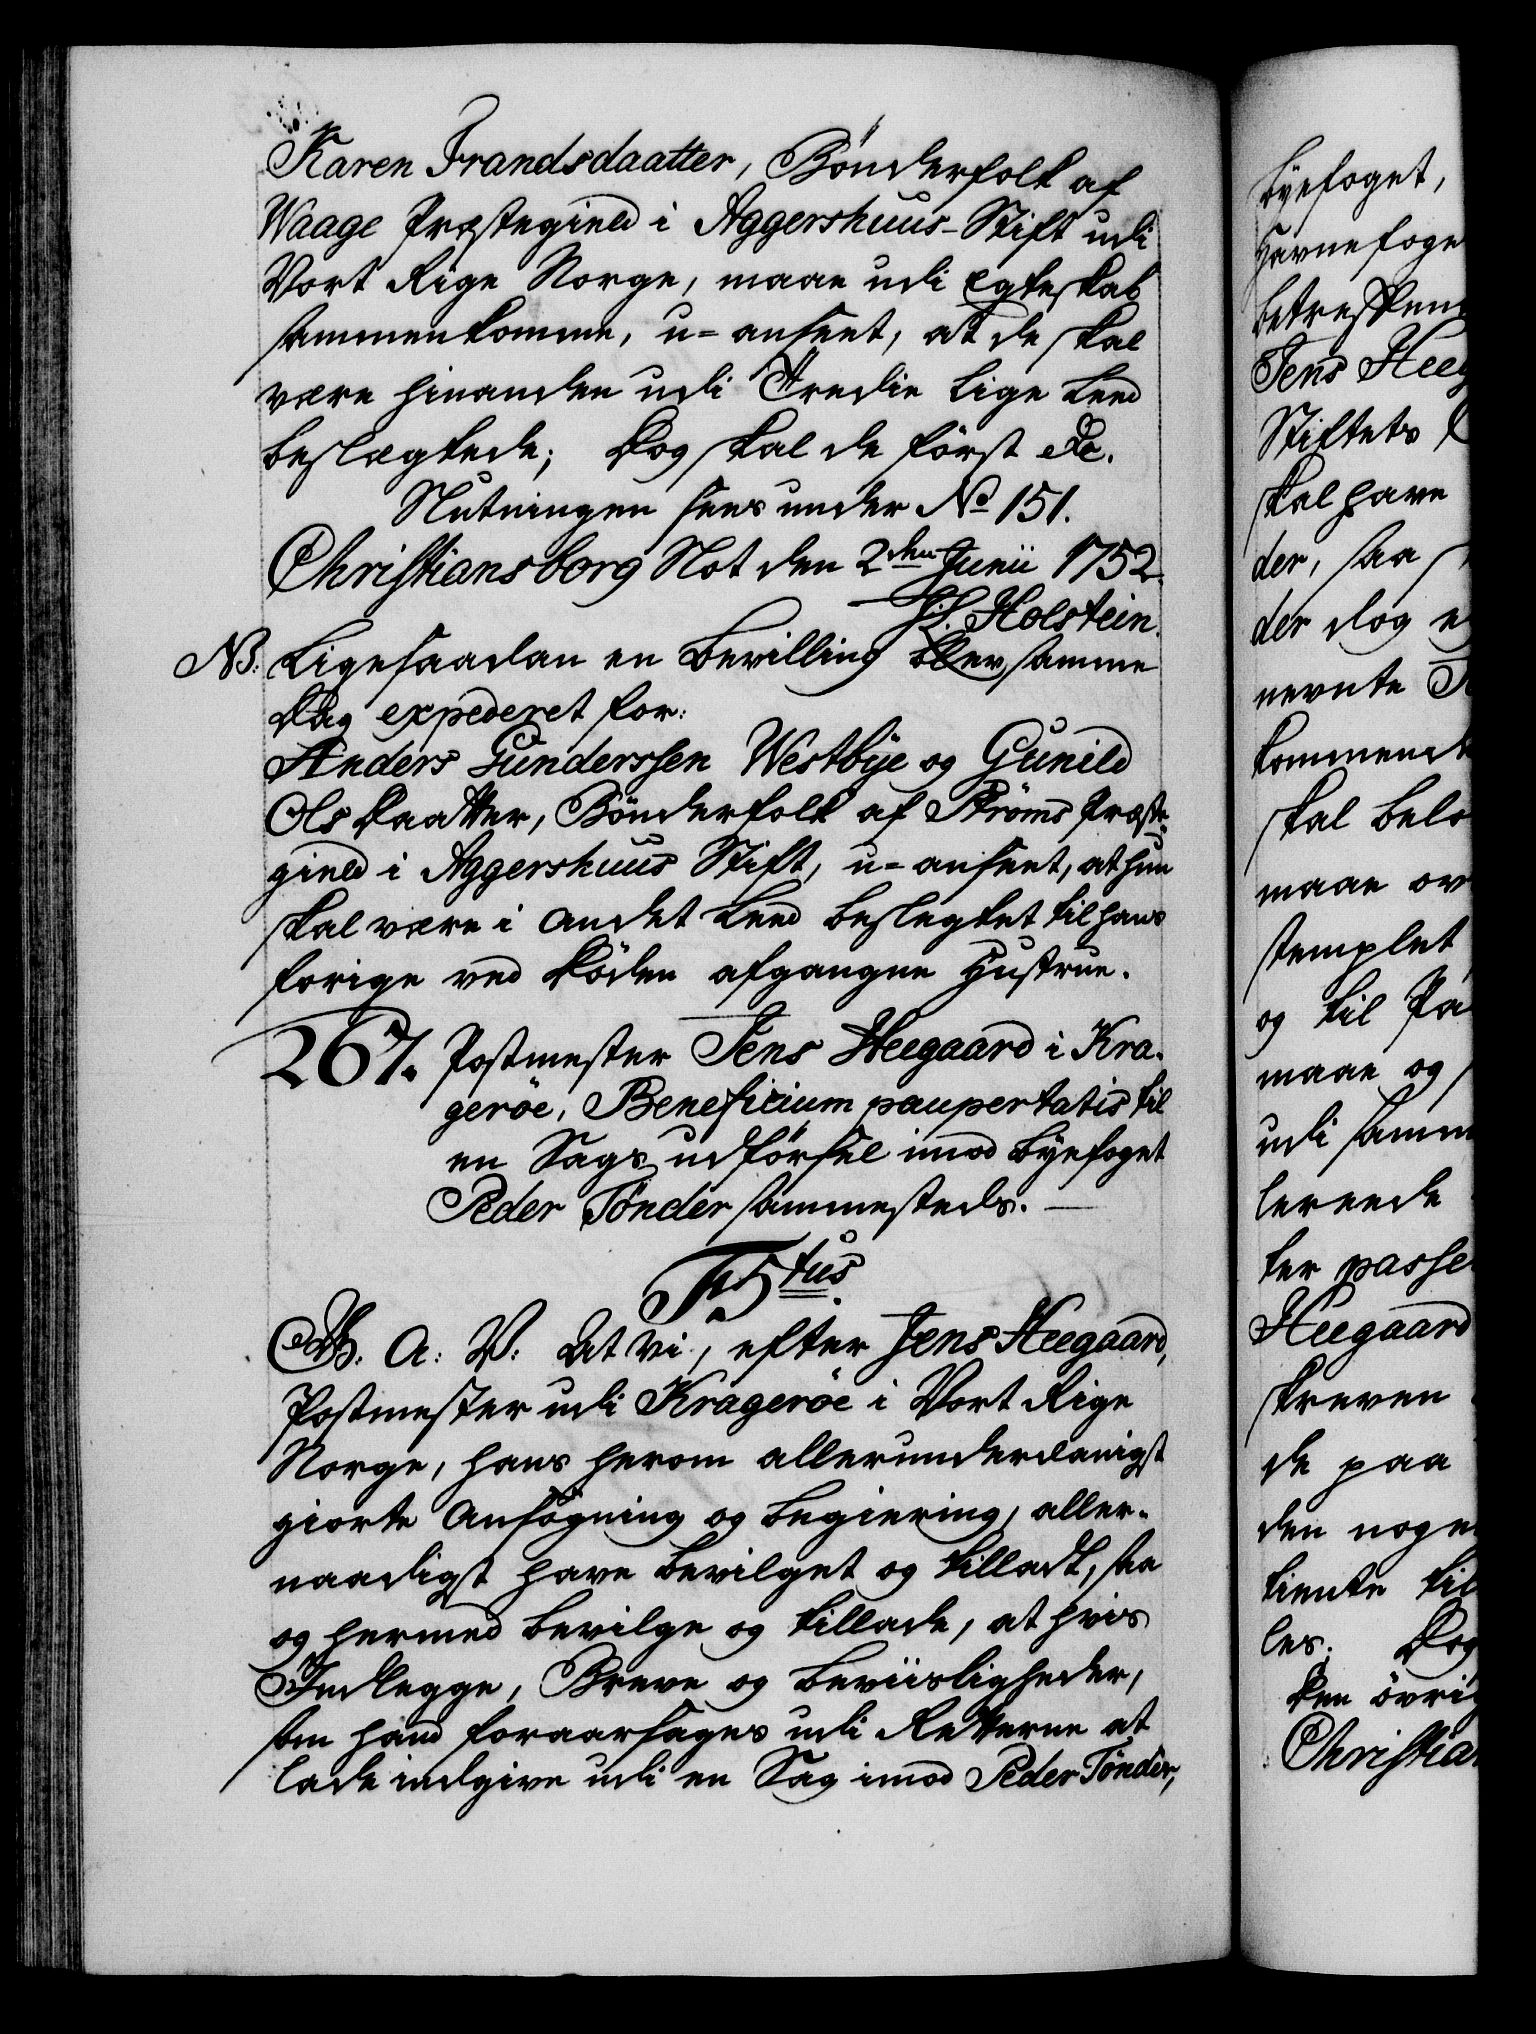 Karen Frandsdaatter, Bönderfolk af
Waage Præstegield i Aggershuus-Stift udi
Vort Rige Norge, maae udi Egteskab
sammenkomme, u-anseet, at de skal
være hinanden udi Tredie Lige Leed
beslægtede; Dog skal de först &c.
Slutningen sees under No 151.
Christiansborg Slot den 2den Junii 1752.
J. L. Holstein.
NB: Ligesaadan en Bevilling blev samme
Dag expederet for:
Anders Gunderssen Westbye og Gunild
Olsdaatter, Bönderfolk af Ströms Præste-
gield i Aggershuus Stift, u-anseet, at hun
skal være i andet Leed beslegtet til hans
forige ved Döden afgangne Hustrue.
267. Postmester Jens Heegaard i Kra-
geröe, Beneficium paupertatis til
en Sags udförsel imod Byefoget
Peder Tönder sammesteds.
F. 5tus.
G. A. V: At Vi, efter Jens Heegaard,
Postmester udi Krageröe i Vort Rige
Norge, hans herom allerunderdanigst
giorte Ansögning og Begiering, aller-
naadigst have bevilget og tilladt, saa
og hermed bevilge og tillade, at hvis
Indlegge, Breve og Beviisligheder,
som hand foraarsages udi Retterne at
lade indgive udi en Sag imod Peder Tönder,
Byefoget,
Havnefoge
betreffen
Jens Heeg
Stiftets
skal have
der, saa
der dog
nevnte
kommend
skal belø
maae ov
stemplet
og til Pa
maae og
udi samm
lerede
ter passe
Heegaard
skreven
de paa
den noge
tiente til
les. Dog
Den övrig
Christian